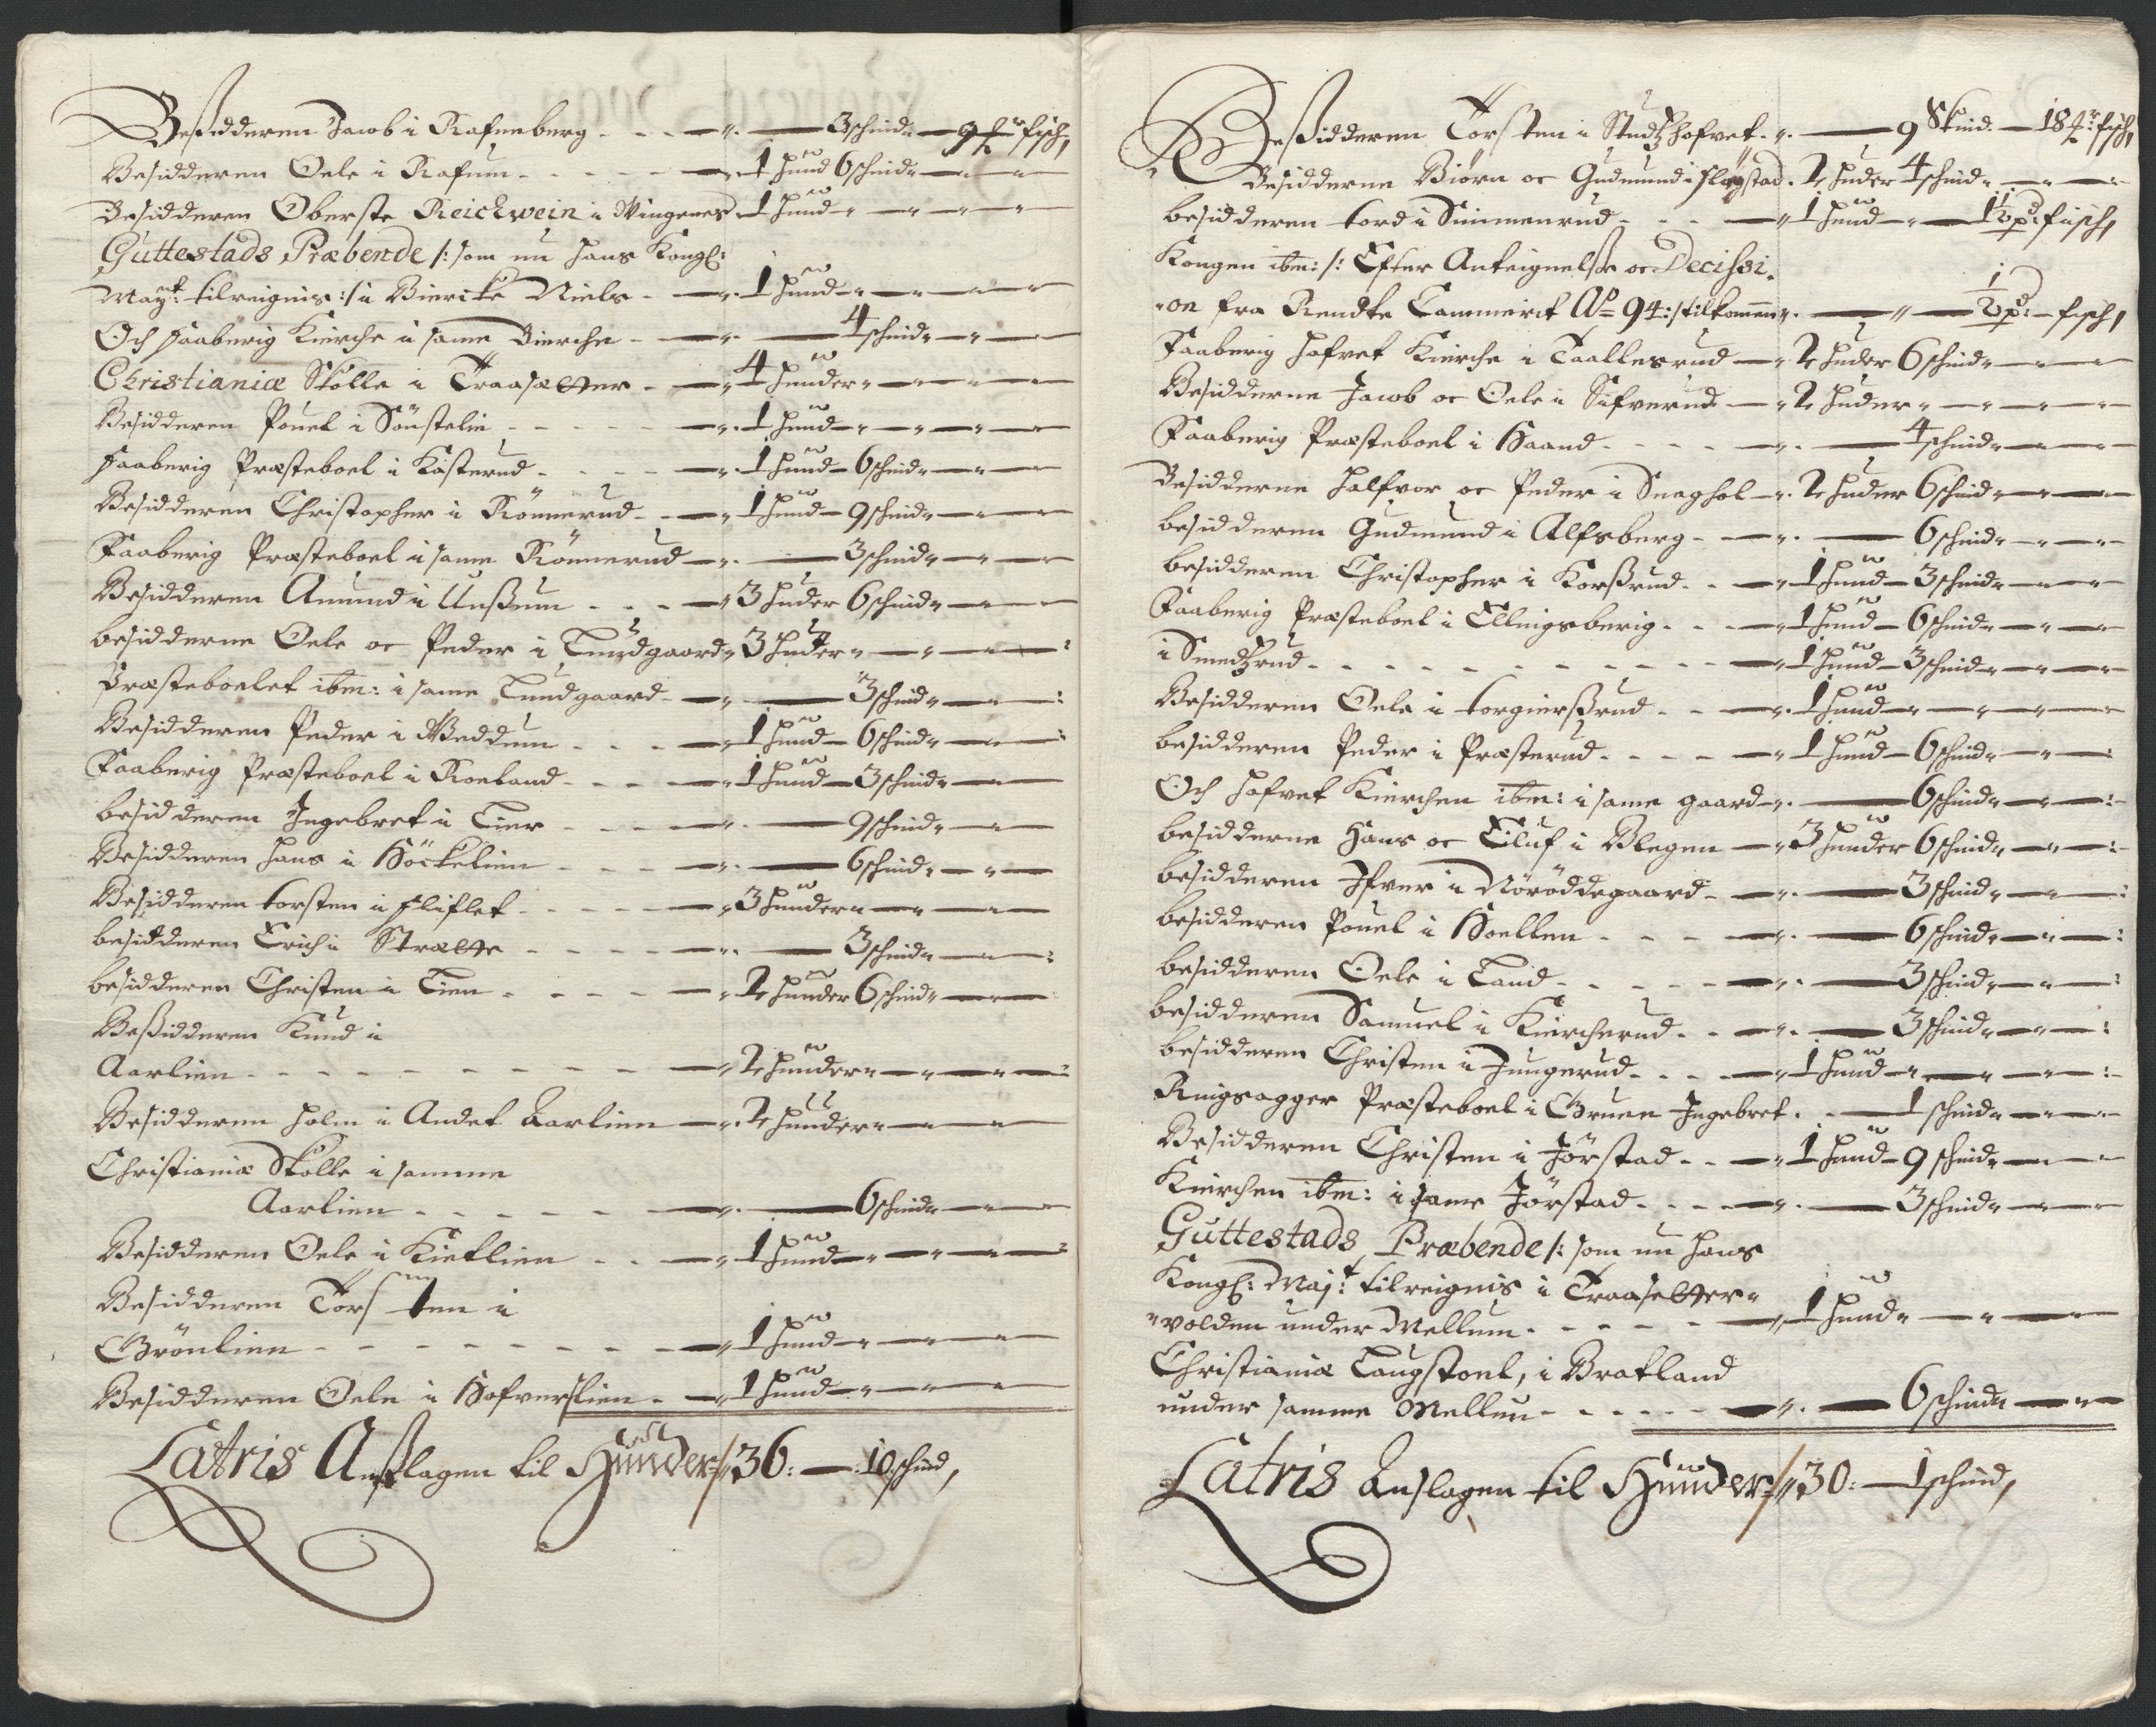 Beßidderen Jacob i Rafneberg - - - 3 schind - 9 ℔r fisch,
Besidderen Oele i Rafum - - - 1 hund 6 schind
Besidderen Oberste Reichwein i Wingenes 1 hund
Guttestads Præbende /: som nu hans Kongl:
Mayt: tilreignis :/ i Biercke Niels - 1 hund
Och faaberig Kierche i same Bierche - 4 schind
Christianiæ Skolle i Traasætter - 4 hunder
Besidderen Pouel i Sönstelie - - - 1 hund
faaberig Præsteboel i Kasterud - - - 1 hund - 6 schind
Besidderen Christopher i Rönnerud - 1 hund - 9 schind
Faaberig Præsteboel i same Rönnerud - 3 schind
Besidderen Amund i Unßum - - - 3 huder 6 schind
besidderne Oele oc Peder i Lundgaard 3 huder
Præsteboelet ibm: i same Lundgaard - 3 schind
Besidderen Peder i Weddum - - - 1 hund - 6 schind
Faaberig Præsteboel i Roeland - - - 1 hund - 3 schind
besidderen Ingebret i Lier - - - 9 schind
Besidderen hans i Höckelien - - - 6 schind
Besidderen torsten i fliflet - - - 3 hunder
besidderen Erich i Strætte - - - 3 schind
besidderen Christen i Lien - - - 2 hunder 6 schind
Beßidderen Knud i
Aarlien - - - 2 hunder
Besidderen holm i Andet Aarlien - 2 hunder
Christianiæ Skolle i samme
Aarlien - - - 6 schind
Besidderen Oele i Kietlien - - - 1 hund
Besidderen Torsten i
Grönlien - - - 1 hund
Besidderen Oele i Hofverslien - 1 hund
Latris Anßlagen til Hunder /: 36: - 10 schind,
Beßidderen Torsten i Studtzhofvet - 9 Skind - 18 ℔r: fisch,
Besidderne Biørn oc Gudmund i fløystad - 2 huder 4 schind
besidderen tord i Simmenrud - - - 1 hund - 1½ ℔p: fisch,
Kongen ibm: /: Efter Anteignelße oc Decissi-
-on fra Rendte Cammerit Ao 94: tilkommen - ½ ℔p: - fisch,
Faaberig hofvet Kierche i Taallesrud - 2 huder 6 schind
Besidderne Jacob oc Oele i Sifverud - 2 huder
Faaberig Præsteboel i Haand - - - 4 schind
Besidderne halfvor oc Peder i Snaghol - 2 huder 6 schind
besidderen Gudmund i Alfsberg - - - 6 schind
besidderen Christopher i Korßrud - - 1 hund - 3 schind
Faaberig Præsteboel i Ellingsberig - - 1 hund - 6 schind
i Smedtzrud - - - 1 hund - 3 schind
Besidderen Oele i torgierßrud - - 1 hund
besidderen Peder i Præsterud - - - 1 hund - 6 schind
Och hofvet Kierchen ibm: i same gaard - 6 schind
besidderne Hans oc Eiluf i Blegen - 3 hunder 6 schind
besidderen Ifver i Nöröddegaard - 3 schind
besidderen Pouel i Hoellen - - - 6 schind
besidderen Oele i Laud - - - 3 schind
besidderen Samuel i Kiercherud - - 3 schind
besidderen Christen i Jungerud - - - 1 hund
Ringsagger Præsteboel i Gruen Ingebret - 1 schind
Besidderen Christen i Jörstad - - 1 hund - 9 schind
Kierchen ibm: i same Jörstad - - - 3 schind
Guttestads Præbende /: som nu hans
Kongl: Maj:t tilreignis i Traasetter-
-volden under Mellum - - - 1 hund
Christianiæ Laugstoel, i Bratland
under samme Mellum - - - 6 schind
Latris Anslagen til Hunder /: 30: - 1 schind,